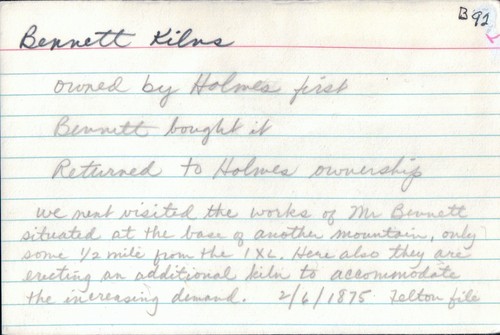 B92
Bennett Kilns
owned by Holmes first
Bennett bought it
Returned to Holmes ownership
we next visited the works of Mr Bennett
situated at the base of another mountain, only
some 1/2 mile from the IXL. Here also they are
erecting an additional kiln to accommodate
the increasing demand. 2/6/1875 Felton file